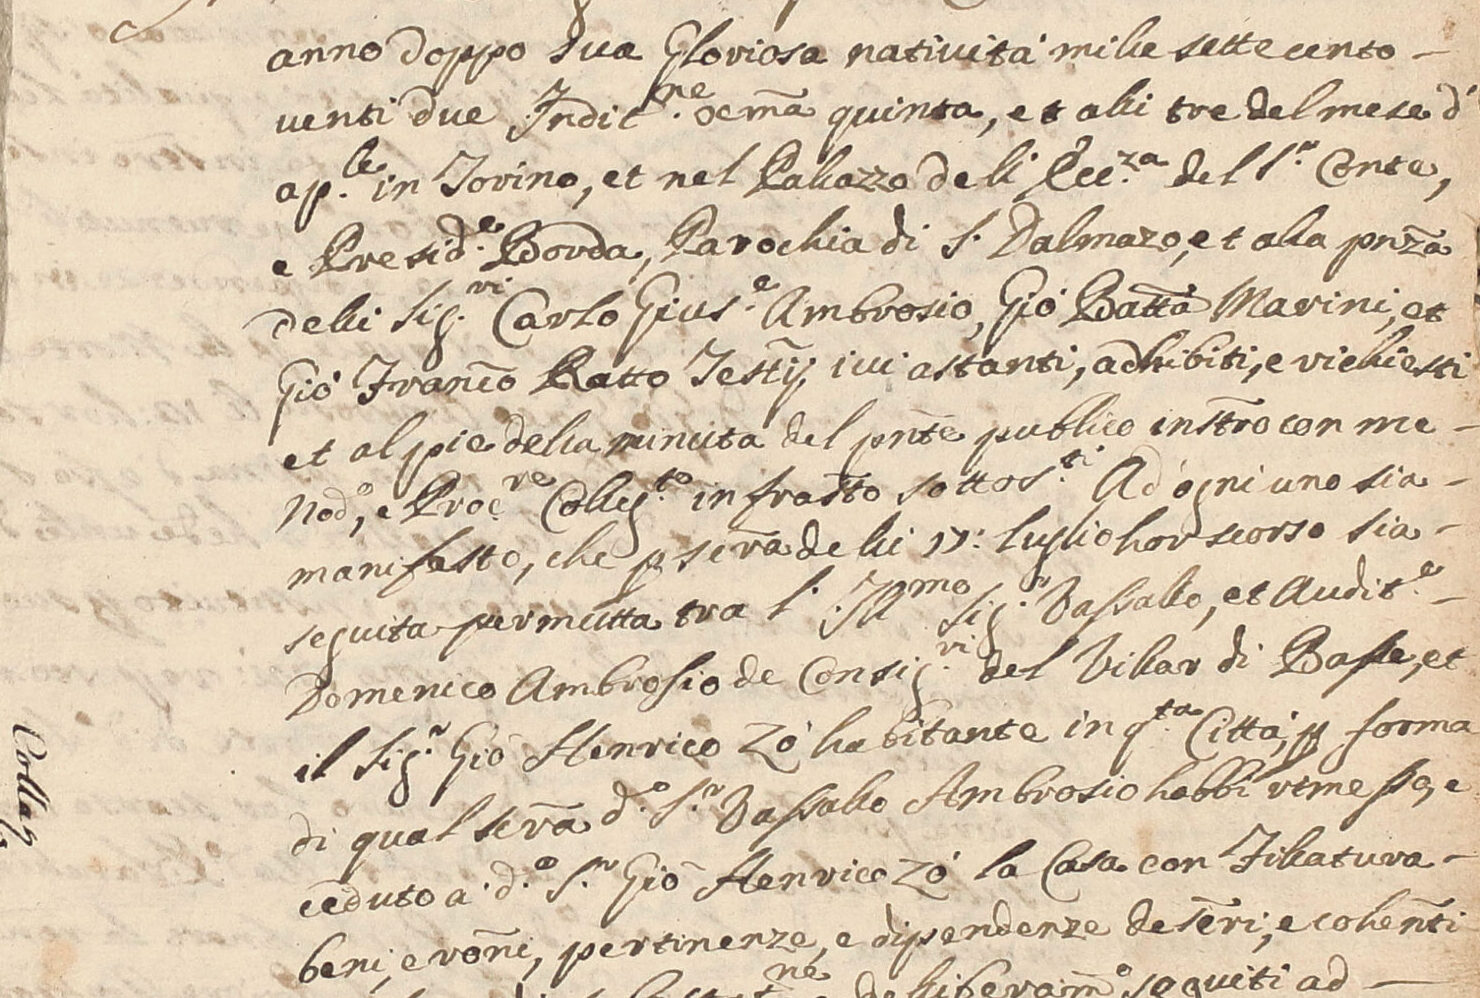 anno doppo sua Gloriosa natività mille settecento –
venti due Indit.ne xma quinta, et alli tre del mese d'
ap.le in Torino, et nel Pallazzo dell Ecc.za del S.r Conte,
e Presid.e Borda, Parochia di S. Dalmazo, et alla pnza
delli Sig.ri Carlo Gius.e Ambrosio, Gio Batta Marini, et
Gio Franco Ratto Testij ivi astanti, adhibiti, e richiesti
et al pie della minuta del pnte publico instro con me –
Nod.o, e Proc.re Colleg.to infrastto sottos.ti Ad ogni uno sia –
manifesto, che p scra delli 17: luglio hor scorso sia –
seguita permutta tra l' Ill.mo Sig.r Vassallo, et Audit.e –
Domenico Ambrosio de Consig.ri del Villar di Basse, et
il Sig.r Gio Henrico Zò habitante in q.ta Città, p forma
di qual scra d.o S.r Vassallo Ambrosio habbi rimesso, e
ceduto a d.o S.r Gio Henrico Zò la Casa con Fillatura –
beni, e roni, pertinenze, e dipendenze descri, e cohenti
deliberam.o seguiti ad –